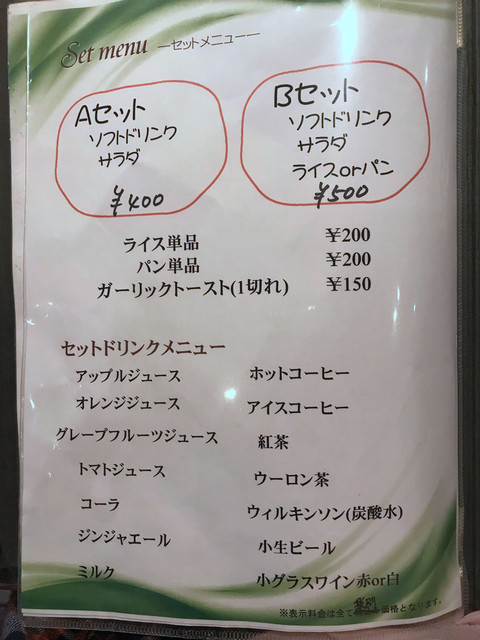 Set menu ―セットメニュー―
Aセット
ソフトドリンク
サラダ
¥400
Bセット
ソフトドリンク
サラダ
ライスorパン
¥500
ライス単品 ¥200
パン単品 ¥200
ガーリックトースト(1切れ) ¥150
セットドリンクメニュー
アップルジュース ホットコーヒー
オレンジジュース アイスコーヒー
グレープフルーツジュース 紅茶
トマトジュース ウーロン茶
コーラ ウィルキンソン(炭酸水)
ジンジャエール 小生ビール
ミルク 小グラスワイン赤or白
※表示料金は全て価格となります。